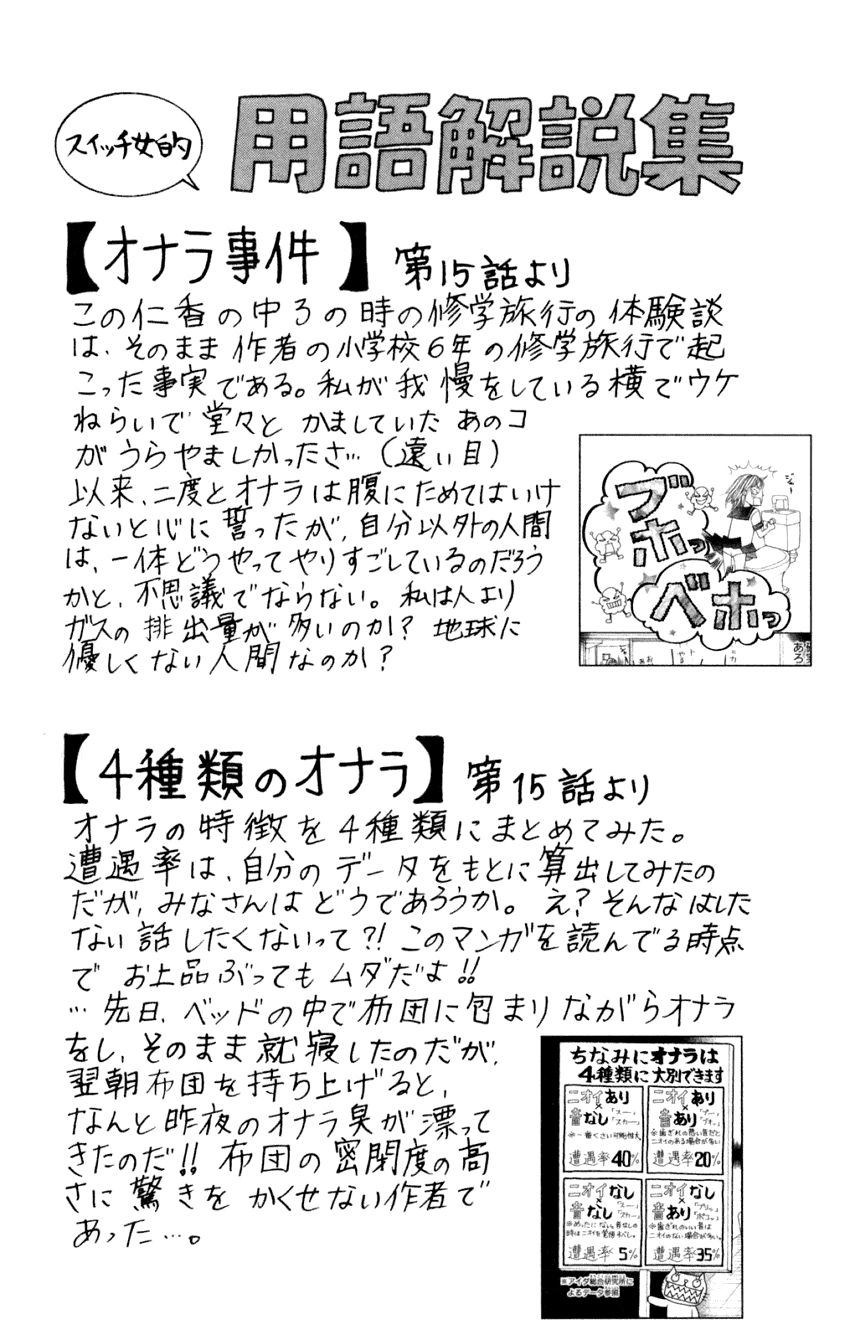 スイッチ女的
用語解説集
【オナラ事件】第15話より
この仁香の中3の時の修学旅行の体験談
は、そのまま作者の小学校6年の修学旅行で起
こった事実である。私が我慢をしている横でウケ
ねらいで堂々とかましていたあのコ
がうらやましかったさ…(遠い目)
以来、二度とオナラは腹にためてはいけ
ないと心に誓ったが、自分以外の人間
は、一体どうやってやりすごしているのだろう
かと、不思議でならない。私は人より
ガスの排出量が多いのか?地球に
優しくない人間なのか?
ブホっ
ベホっ
【4種類のオナラ】第15話より
オナラの特徴を4種類にまとめてみた。
遭遇率は、自分のデータをもとに算出してみたの
だが、みなさんはどうであろうか。え?そんなはした
ない話したくないって?!このマンガを読んでる時点
でお上品ぶってもムダだよ!!
…先日、ベッドの中で布団に包まりながらオナラ
をし、そのまま就寝したのだが、
翌朝布団を持ち上げると、
なんと昨夜のオナラ臭が漂って
きたのだ!!布団の密閉度の高
さに驚きをかくせない作者で
あった…。
ちなみにオナラは
4種類に大別できます
ニオイあり
×
音なし「スー…」「スカー…」
遭遇率40%
ニオイあり
×
音あり「ブー」「ブオッ」
※歯ぎれの悪い音だと
ニオイのある場合が多い
遭遇率20%
ニオイなし
×
音なし「スー…」「スカー…」
遭遇率5%
ニオイなし
×
音あり「プリッ」「ポコッ」
※歯ぎれのいい音は
ニオイのない場合が多い
遭遇率35%
※アイダ総合研究所に
よるデータ参照